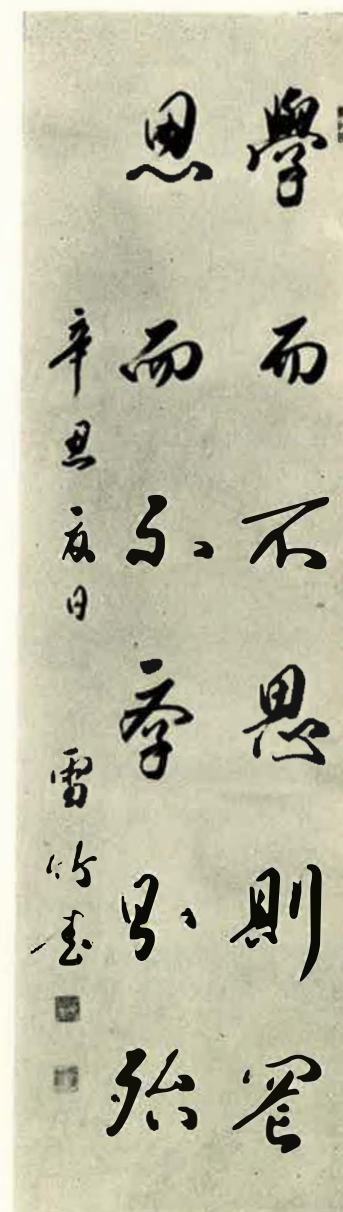 學而不思則罔
思而不學則殆
辛 夏日 雪竹書